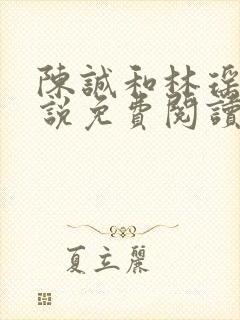 陳誠和林瑤
說免費閱讀
夏立麗